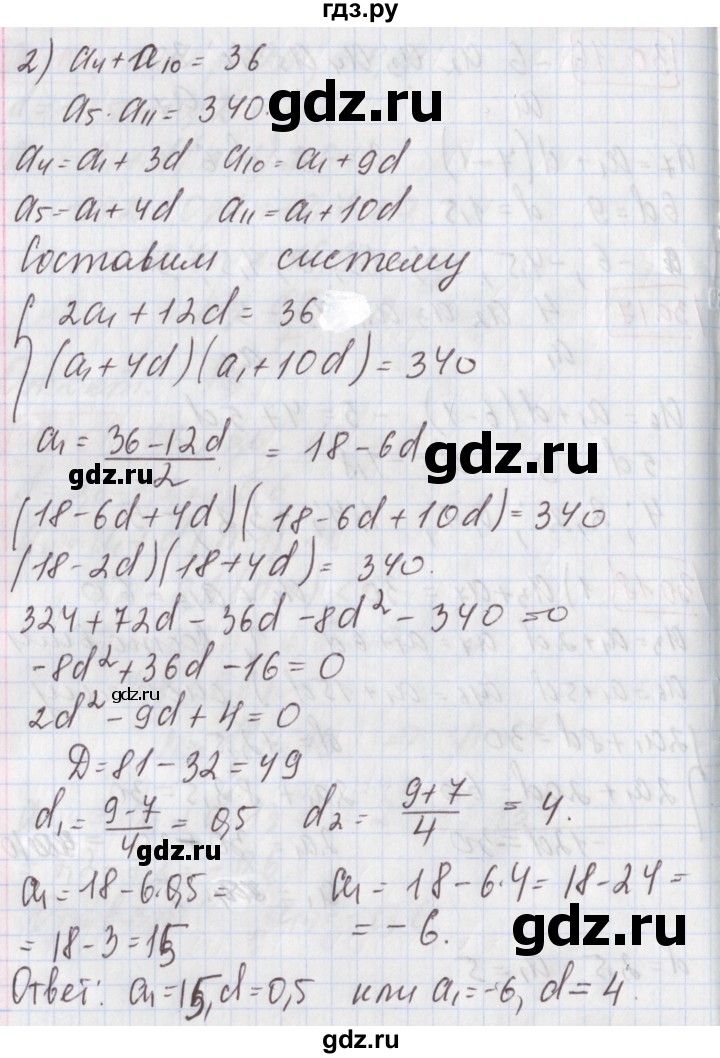 гдз.ру
2) a₄ + a₁₀ = 36
a₅ · a₁₁ = 340.
gdz.ru
a₄ = a₁ + 3d a₁₀ = a₁ + 9d
a₅ = a₁ + 4d a₁₁ = a₁ + 10d
Составим систему
{ 2a₁ + 12d = 36
(a₁ + 4d)(a₁ + 10d) = 340
a₁ = (36 - 12d)/2 = 18 - 6d
gdz.ru gdz.ru
(18 - 6d + 4d)(18 - 6d + 10d) = 340
(18 - 2d)(18 + 4d) = 340.
324 + 72d - 36d - 8d² - 340 = 0
-8d² + 36d - 16 = 0
gdz.ru
2d² - 9d + 4 = 0
D = 81 - 32 = 49
d₁ = (9 - 7)/4 = 0,5 d₂ = (9 + 7)/4 = 4.
gdz.ru
a₁ = 18 - 6 · 0,5 = a₁ = 18 - 6 · 4 = 18 - 24 =
= 18 - 3 = 15 = -6.
gdz.ru
Ответ: a₁ = 15, d = 0,5 или a₁ = -6, d = 4.
gdz.ru